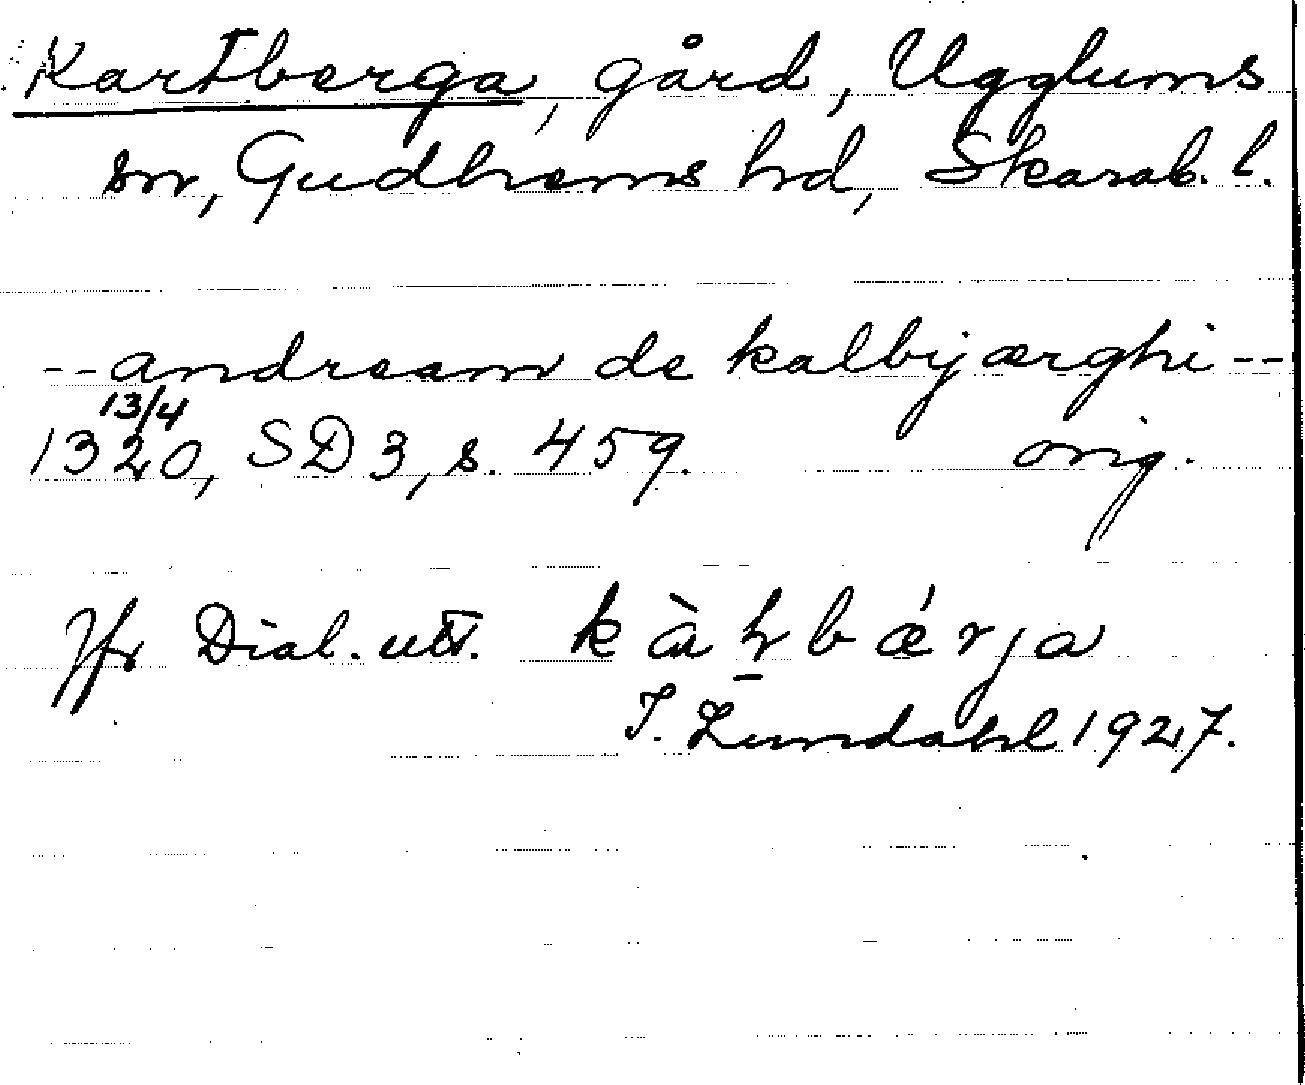 Kartberga, gård, Ugglums
sn, Gudhems hd, Skarab. l.
-- andream de kalbyærghi --
13/4
1320, SD 3, s. 459. orig.
Jfr Dial. utt.
I. Lundahl 1927.